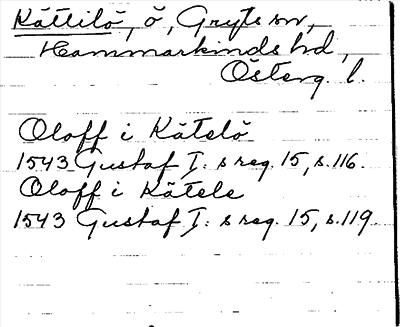 Kättilö, ö, Gryts sn,
Hammarkinds hd,
Österg. l.
Oloff i Kätelö
1543 Gustaf I: s reg. 15, s. 116.
Oloff i Kätele
1543 Gustaf I: s reg. 15, s. 119